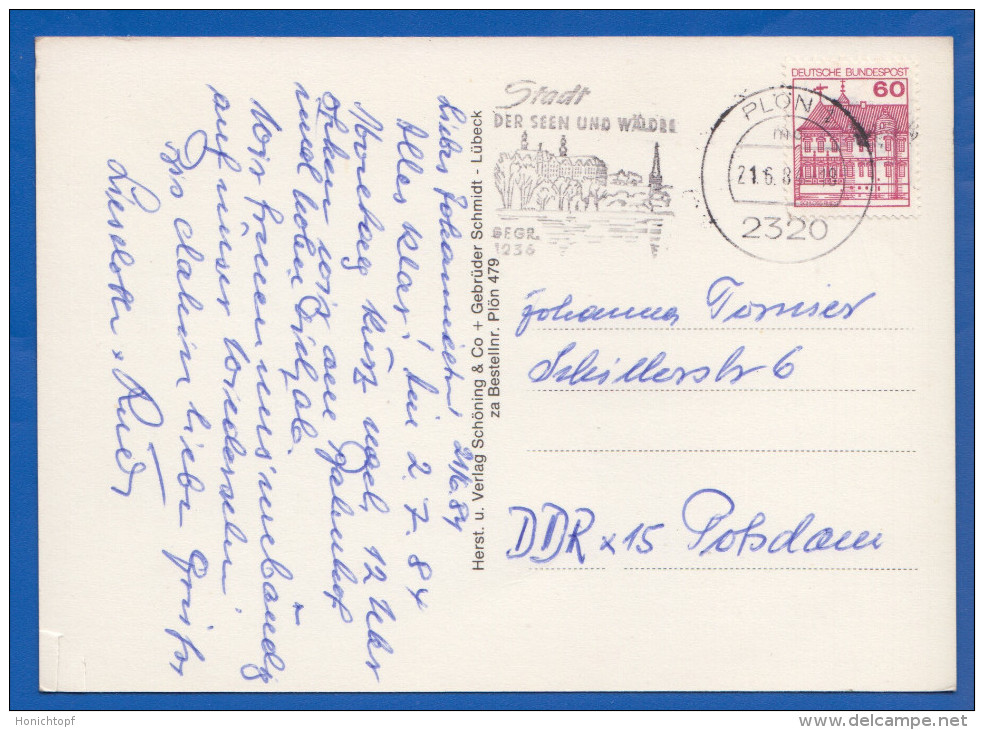 Liebes Johannchen! 21/6.84
Alles klar! bin 2. 7. 84
Vormittag kurz nach 12 Uhr
stehen wir am Bahnhof
und holen Dich ab.
Wir freuen uns unbändig
auf unser Wiedersehen
Bis dahin liebe Grüße
Lieselotte + Rudi
Herst. u. Verlag Schöning & Co + Gebrüder Schmidt - Lübeck
za Bestellnr. Plön 479
Stadt
DER SEEN UND WÄLDER
GEGR.
1236
PLÖN 1
mc
21.6.84
2320
DEUTSCHE BUNDESPOST
60
Johanna Tornier
Schillerstr 6
DDR x 15 Potsdam
Honichtopf
delcampe.net